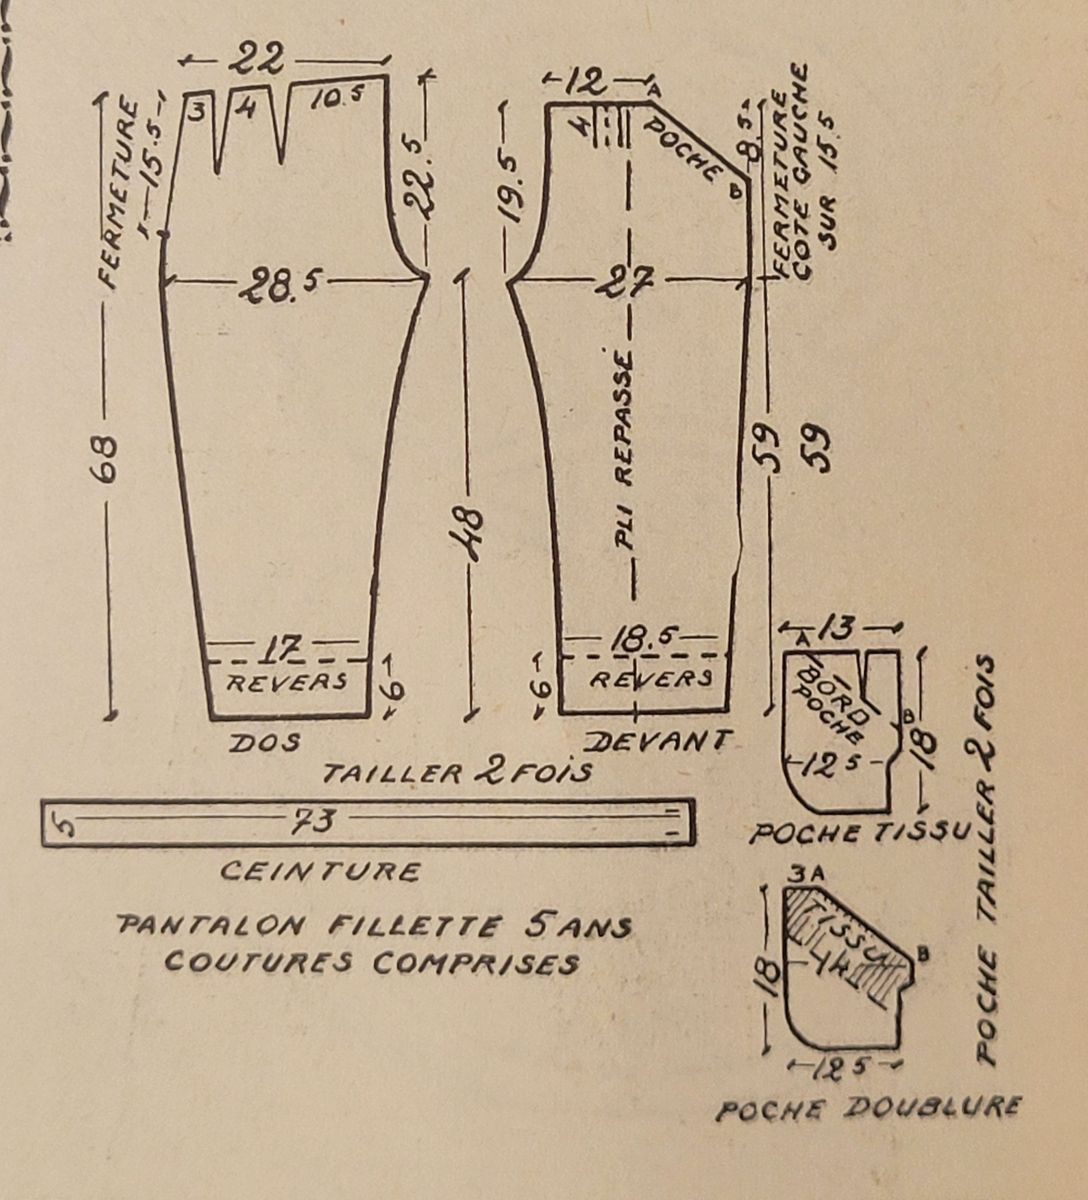 22
3
4
10.5
FERMETURE
15.5
22.5
28.5
68
48
17
REVERS
6
DOS
12
A
4
POCHE
B
8.5
19.5
FERMETURE
COTÉ GAUCHE
SUR 15.5
27
PLI REPASSÉ
59
59
18.5
REVERS
6
DEVANT
TAILLER 2 FOIS
5
73
CEINTURE
PANTALON FILLETTE 5 ANS
COUTURES COMPRISES
13
A
BORD
POCHE
B
12 5
18
POCHE TISSU
3 A
TISSU
B
14
18
12 5
POCHE DOUBLURE
POCHE TAILLER 2 FOIS